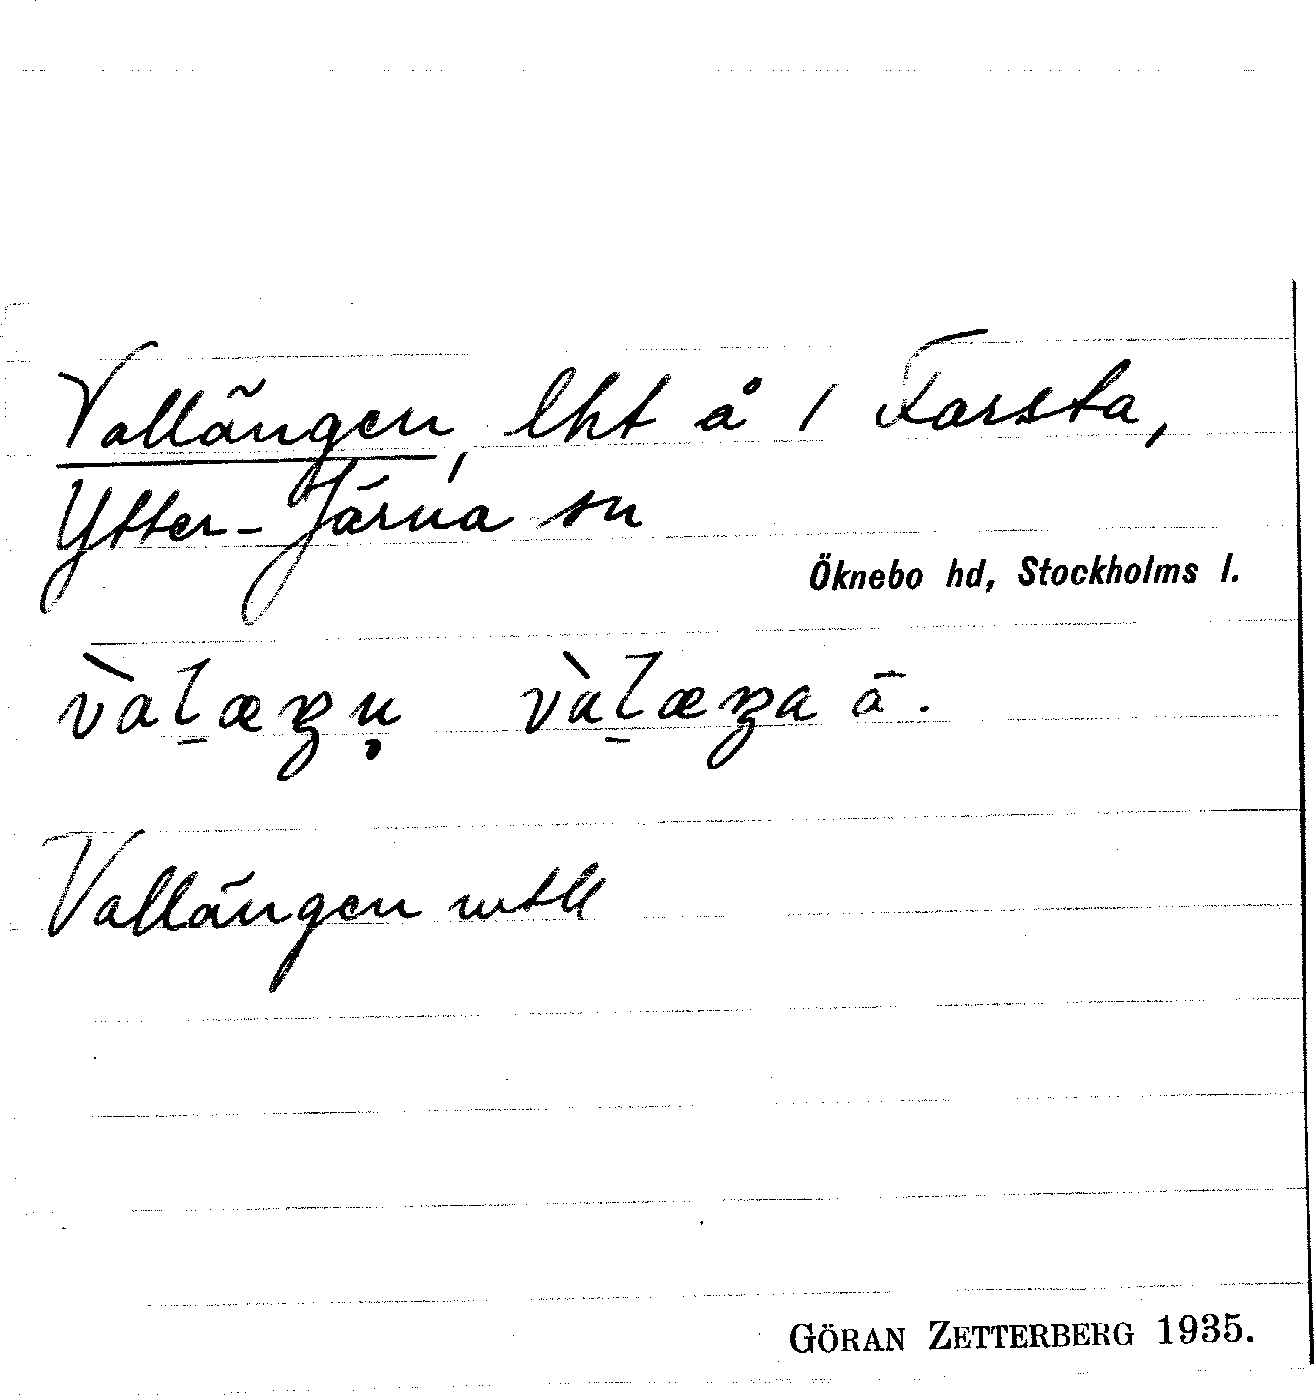 Vallängen, lht å 1 Farsta,
Ytter-Järna sn
Öknebo hd, Stockholms l.
Vallängen mtll
GÖRAN ZETTERBERG 1935.